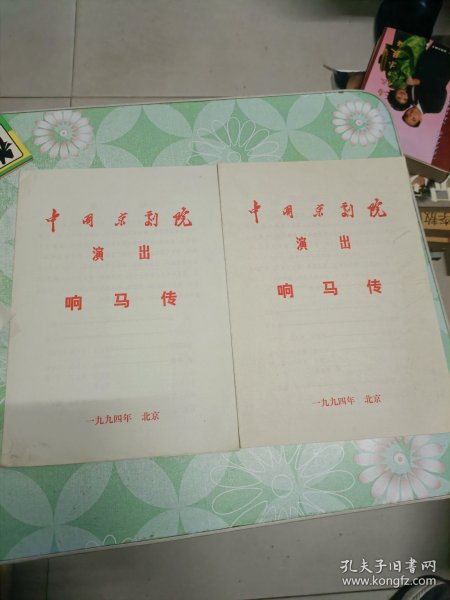 中国京剧院
演出
响马传
一九九四年 北京
中国京剧院
演出
响马传
一九九四年 北京
孔夫子旧书网
www.kongfz.com